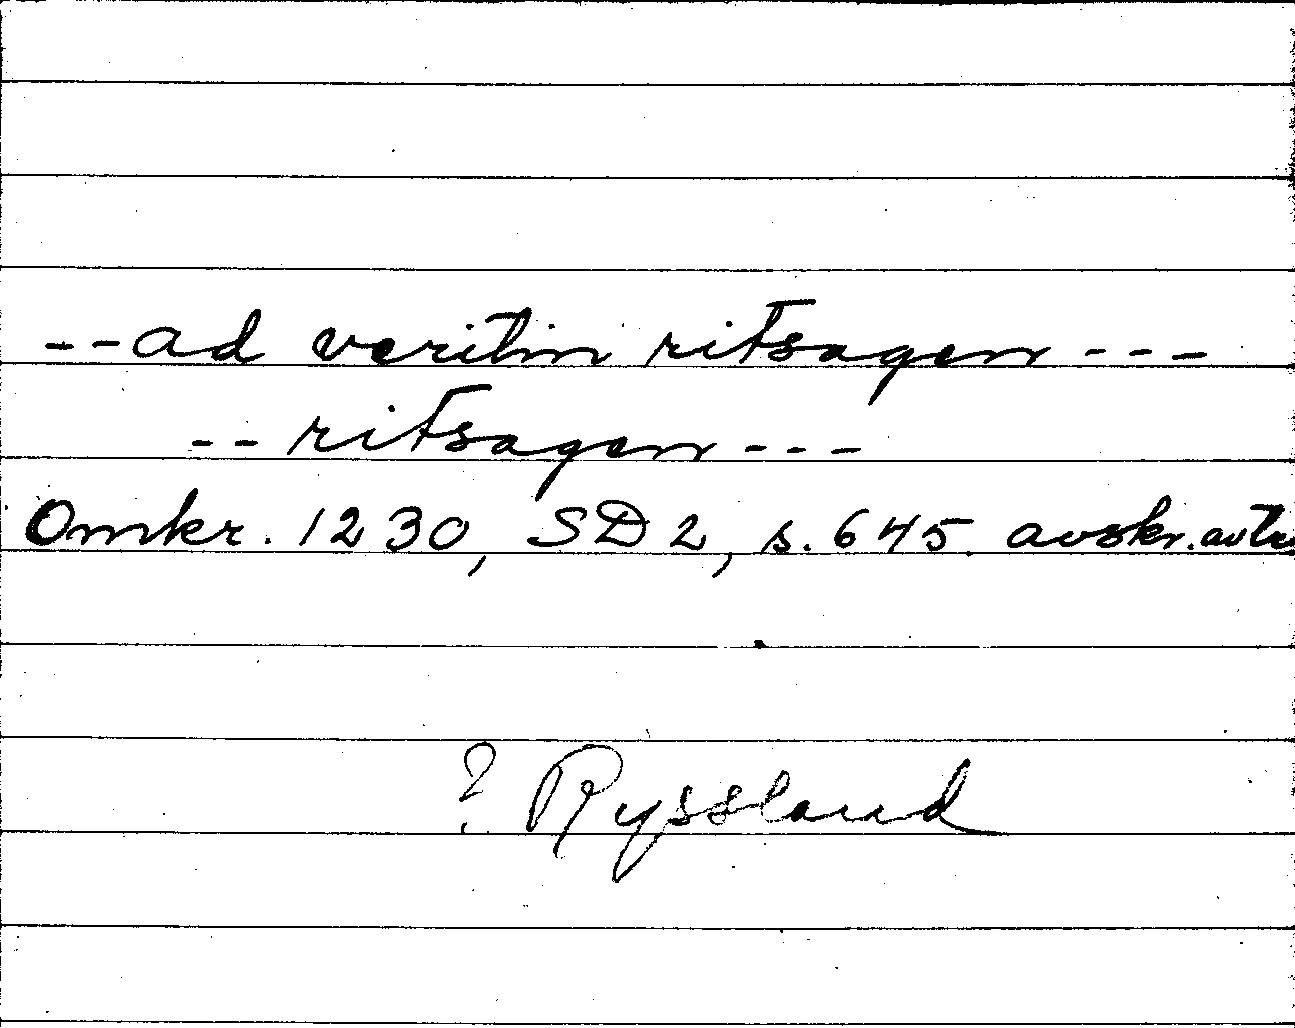 --ad veritin ritsagen---
--ritsagen---
Omkr. 1230, SD 2, s. 645. avskr.
? Ryssland